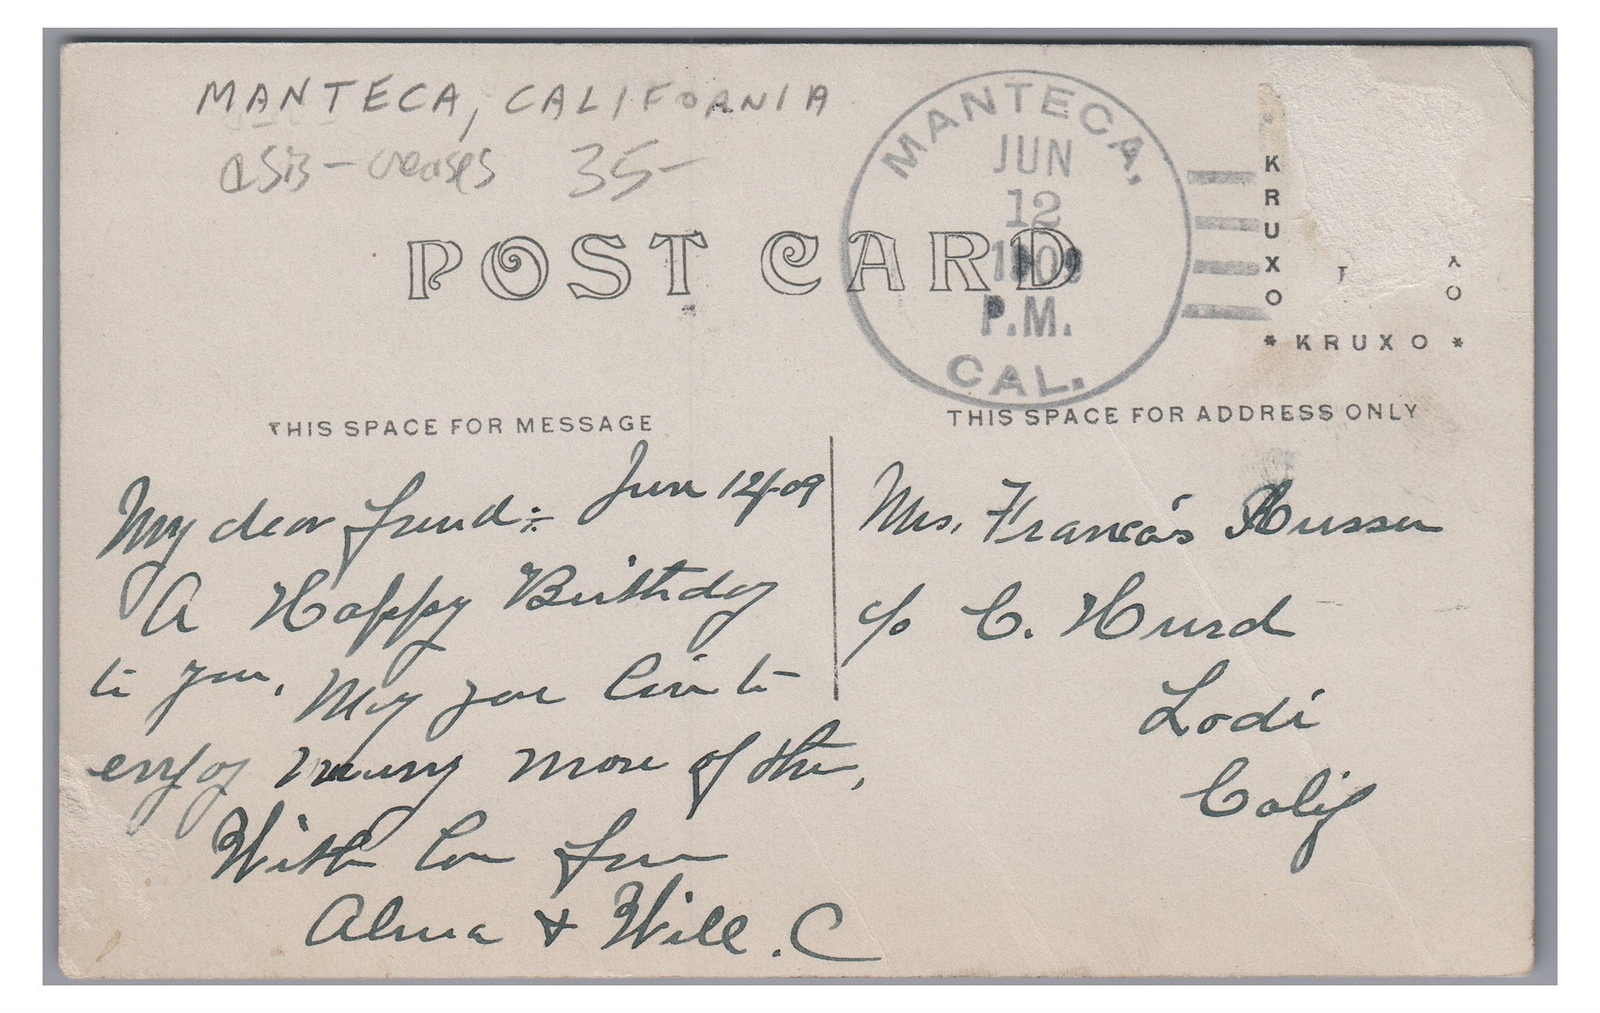 MANTECA, CALIFORNIA
asis - creases 35-
MANTECA,
JUN
12
1909
P.M.
CAL.
POST CARD
KRUXO
* KRUXO *
THIS SPACE FOR MESSAGE
THIS SPACE FOR ADDRESS ONLY
My dear friend:- Jun 12-09
A Happy Birthday
to you. May you live to
enjoy many more of them,
With love from
Alma & Will. C
Mrs. Francis
c/o C. Hurd
Lodi
Calif